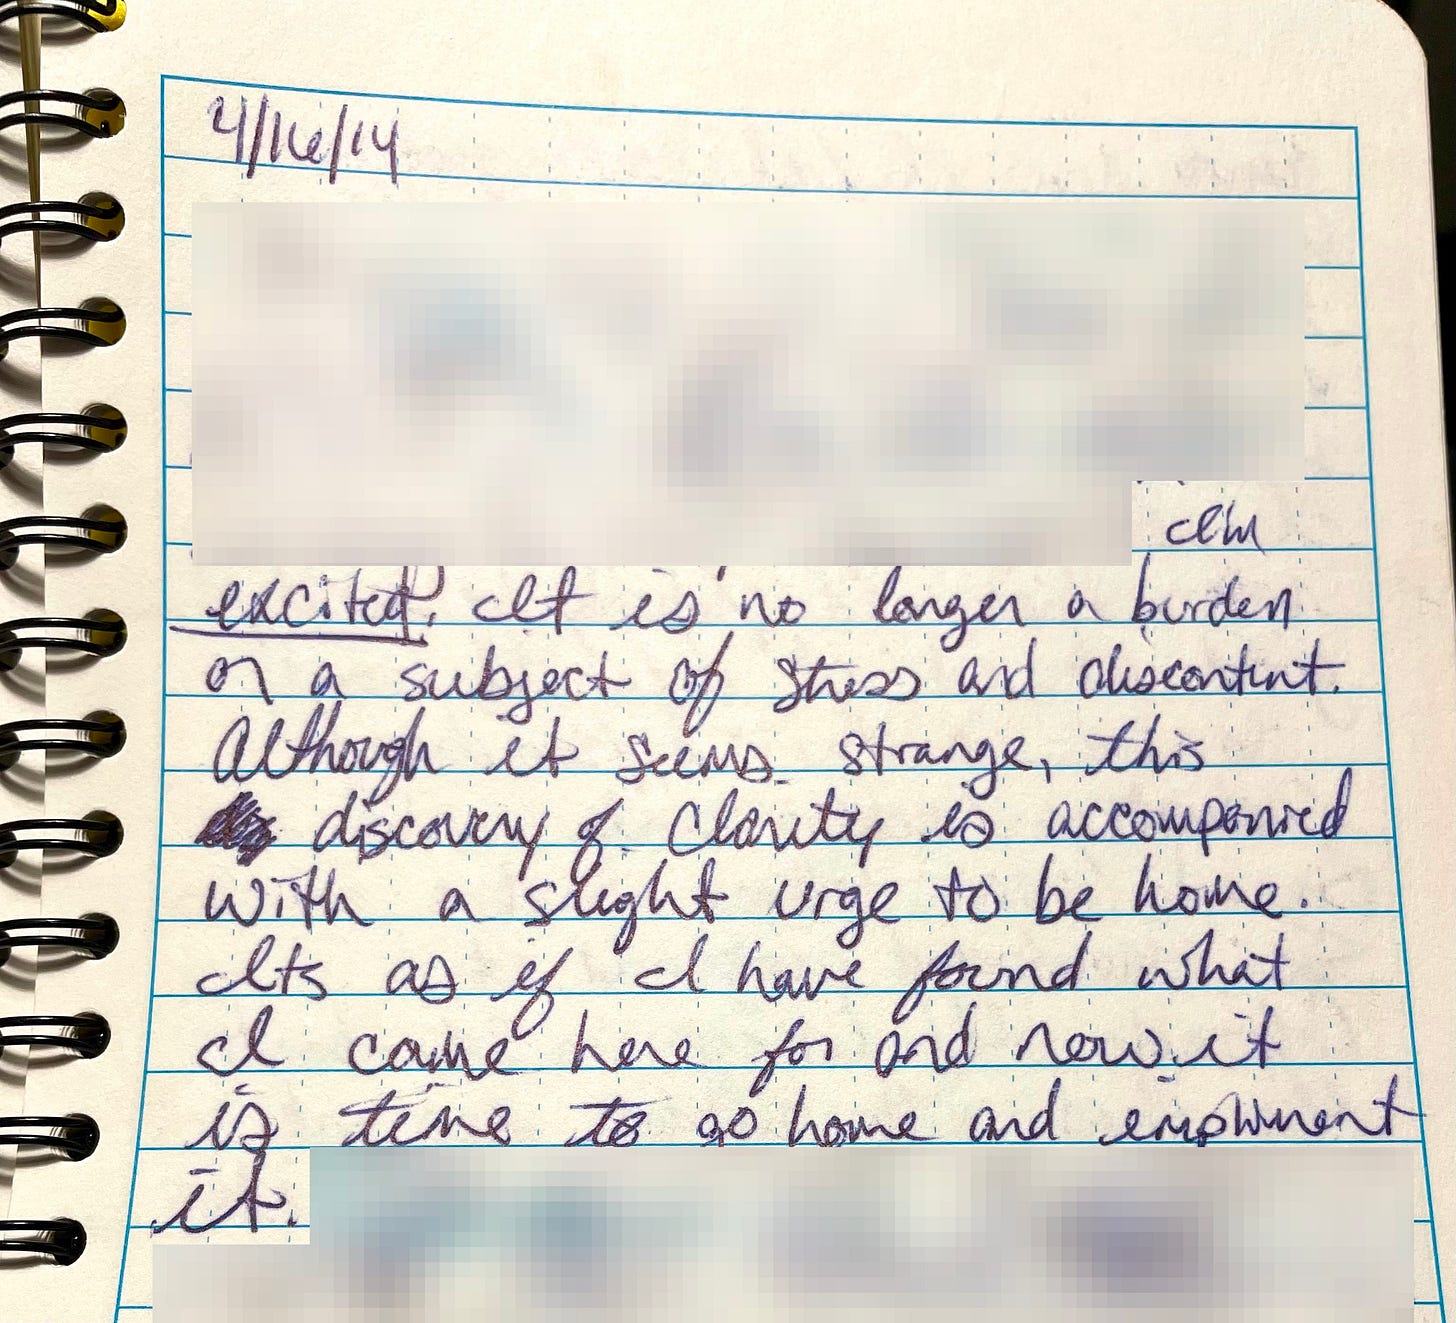 4/16/14
I'm
excited. It is no longer a burden
or a subject of stress and discontent.
Although it seems strange, this
discovery of clarity is accompanied
with a slight urge to be home.
Its as if I have found what
I came here for and now it
is time to go home and impliment
it.